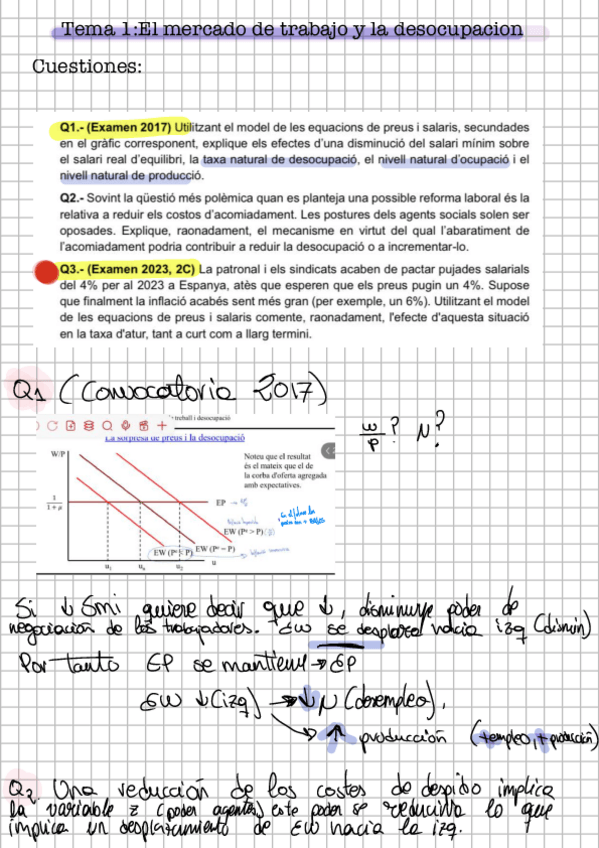 Tema 1:El mercado de trabajo y la desocupacion
Cuestiones:
Q1.- (Examen 2017) Utilitzant el model de les equacions de preus i salaris, secundades
en el gràfic corresponent, explique els efectes d'una disminució del salari mínim sobre
el salari real d'equilibri, la taxa natural de desocupació, el nivell natural d'ocupació i el
nivell natural de producció.
Q2.- Sovint la qüestió més polèmica quan es planteja una possible reforma laboral és la
relativa a reduir els costos d'acomiadament. Les postures dels agents socials solen ser
oposades. Explique, raonadament, el mecanisme en virtut del qual l'abaratiment de
l'acomiadament podria contribuir a reduir la desocupació o a incrementar-lo.
Q3.- (Examen 2023, 2C) La patronal i els sindicats acaben de pactar pujades salarials
del 4% per al 2023 a Espanya, atès que esperen que els preus pugin un 4%. Supose
que finalment la inflació acabés sent més gran (per exemple, un 6%). Utilitzant el model
de les equacions de preus i salaris comente, raonadament, l'efecte d'aquesta situació
en la taxa d'atur, tant a curt com a llarg termini.
Q1 (Convocatoria 2017)
treball i desocupació
La sorpresa de preus i la desocupació
W/P
Noteu que el resultat
és el mateix que el de
la corba d'oferta agregada
amb expectatives.
w/p? N?
1
1 + μ
EP
EW (Pᵉ > P)
EW (Pᵉ < P)
EW (Pᵉ = P)
u₁
uₙ
u₂
u
Si ↓ Smi quiere decir que ↓, disminuye poder de
negociación de los trabajadores. EW se desplaza hacia izq (dismin)
Por tanto EP se mantiene → EP
EW ↓ (izq) → ↓ N (desempleo),
↑ producción (+empleo, + producción)
Q2. Una reducción de los costes de despido implica
la variable z (poder agentes) este poder se reduciría lo que
implica un desplazamiento de EW hacia la izq.